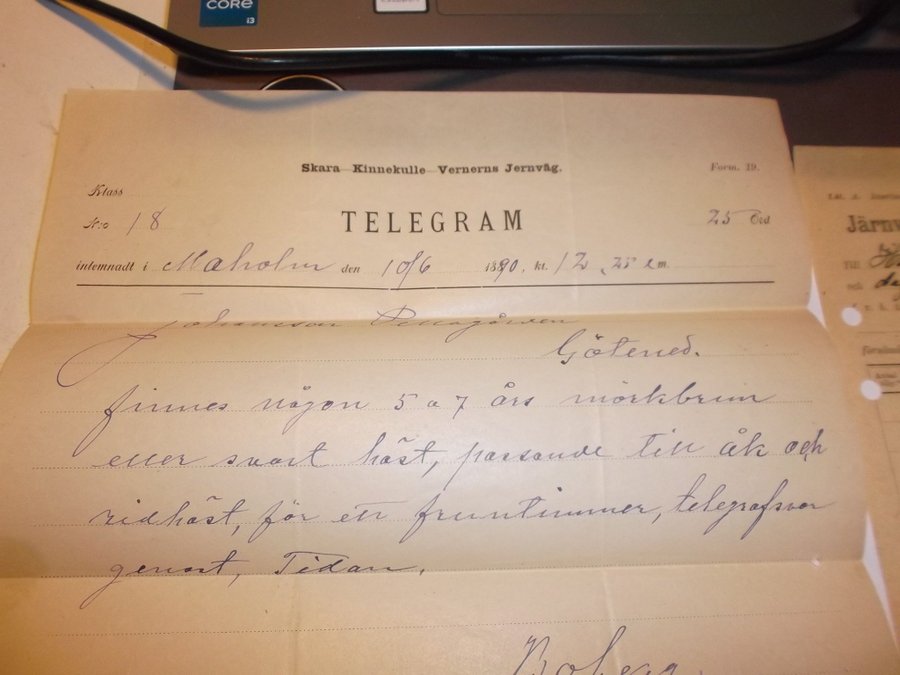 CORE
i3
Skara Kinnekulle Vernerns Jernväg.
Form. 19.
Klass
N:o 18
TELEGRAM
25 Ord
inlemnadt i Maholm den 10/6 1890, kl. 12, 25 e m.
Johansson
Götened.
finnes någon 5 a 7 års mörkbrun
eller svart häst, passande till åk och
ridhäst, för ett fruntimmer, telegrafsvar
genast, Tidan.
Järnv
Till
och